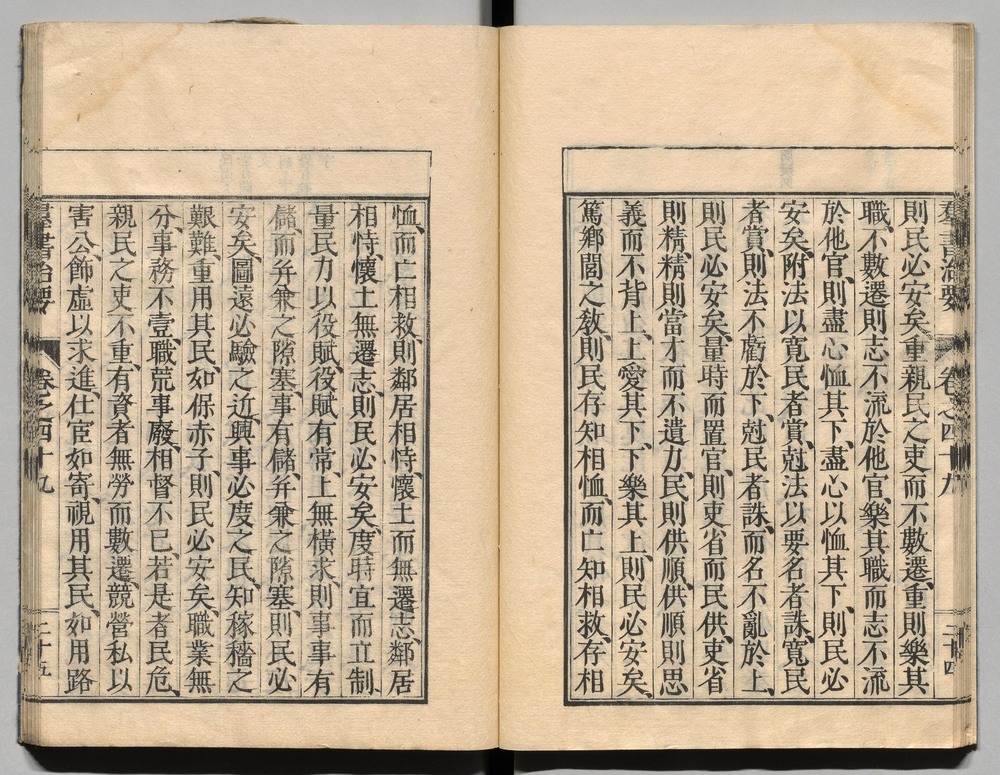 羣書治要 卷之四十九 二十四
則民必安矣、重親民之吏而不數遷、重則樂其
職、不數遷則志不流於他官、樂其職而志不流
於他官、則盡心恤其下、盡心以恤其下、則民必
安矣、附法以寬民者賞、尅法以要名者誅、寬民
者賞、則法不虧於下、尅民者誅、而名不亂於上、
則民必安矣、量時而置官、則吏省而民供、吏省
則精、精則當才而不遺力、民則供順、供順則思
義而不背上、上愛其下、下樂其上、則民必安矣、
篤鄉閭之敎、則民存知相恤、而亡知相救、存相
恤、而亡相救、則鄰居相恃、懷土而無遷志、鄰居
相恃、懷土無遷志、則民必安矣、度時宜而立制、
量民力以役賦、役賦有常、上無橫求、則事事有
儲、而幷兼之隙塞、事有儲、幷兼之隙塞、則民必
安矣、圖遠必驗之近、興事必度之民、知稼穡之
艱難、重用其民、如保赤子、則民必安矣、職業無
分、事務不壹、職荒事廢、相督不已、若是者民危、
親民之吏不重、有資者無勞而數遷、競營私以
害公、飾虛以求進、仕宦如寄、視用其民、如用路
羣書治要 卷之四十九 二十五